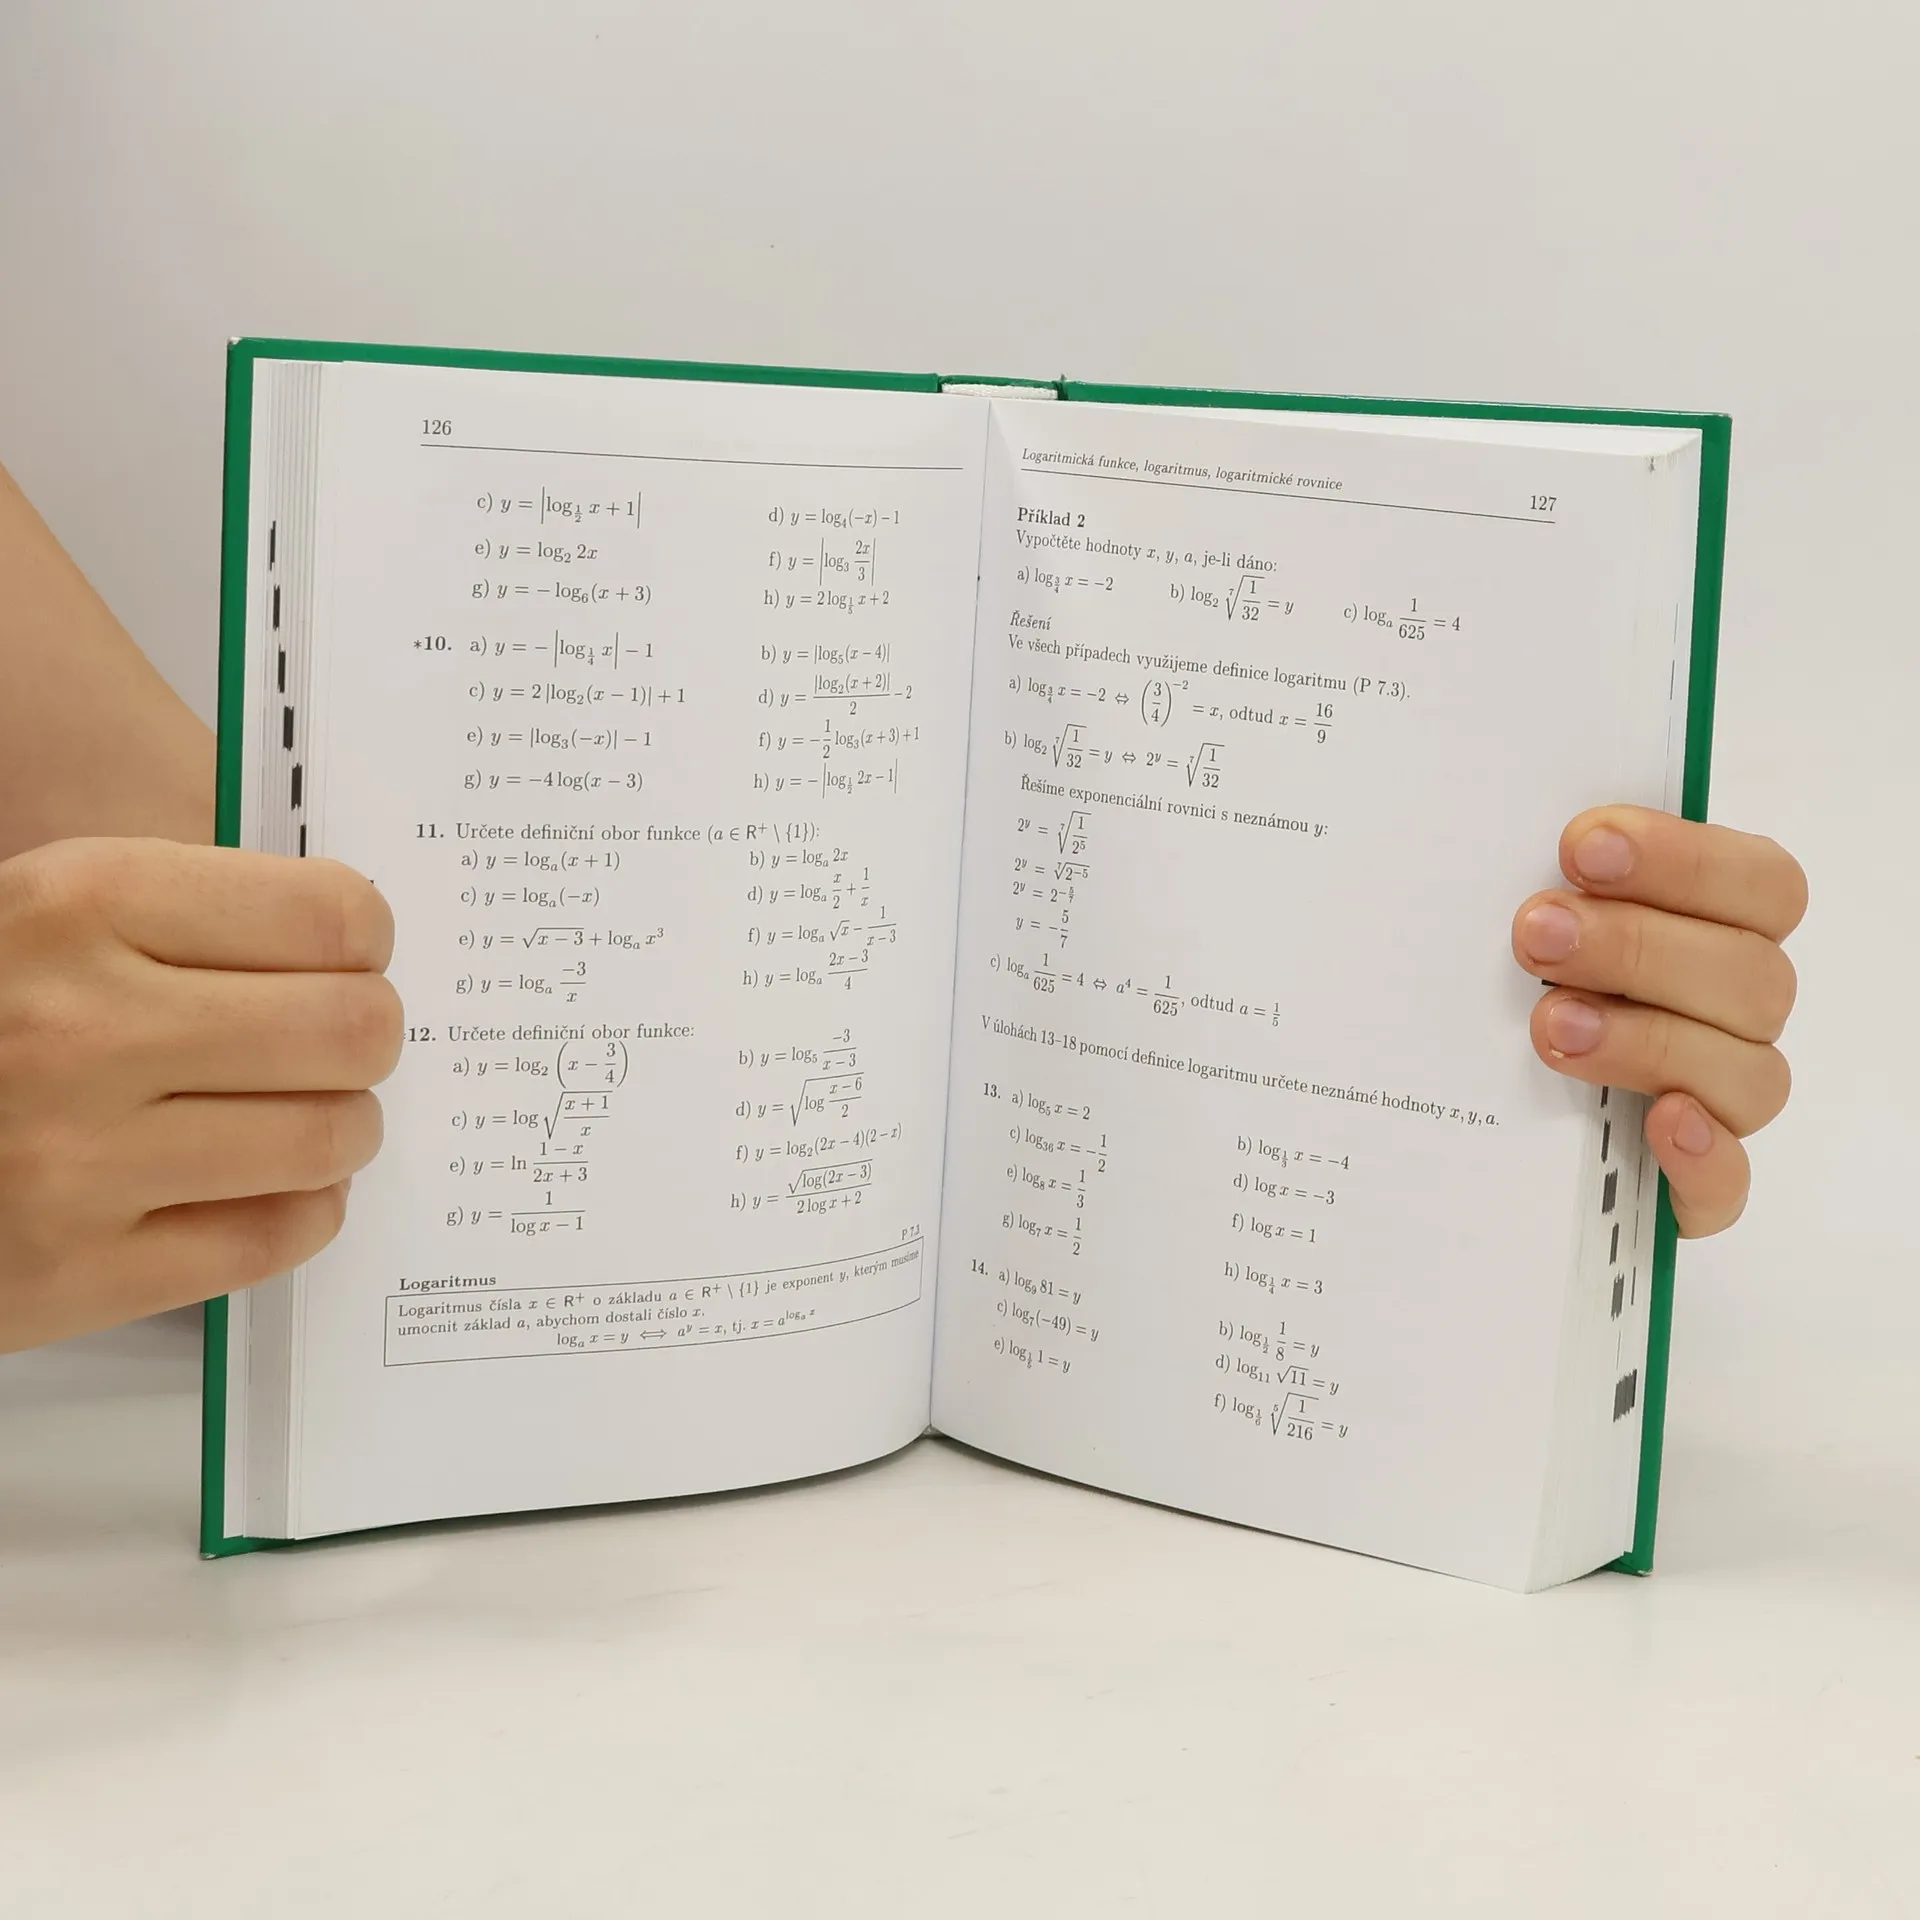 126
c) y = |log_{1/2} x + 1|
d) y = log₄(−x) − 1
e) y = log₂ 2x
f) y = |log₃ 2x/3|
g) y = − log₆(x + 3)
h) y = 2 log_{1/5} x + 2
*10. a) y = − |log_{1/4} x| − 1
b) y = |log₅(x − 4)|
c) y = 2 |log₂(x − 1)| + 1
d) y = |log₂(x + 2)|/2 − 2
e) y = |log₃(−x)| − 1
f) y = −1/2 log₃(x + 3) + 1
g) y = −4 log(x − 3)
h) y = − |log_{1/2} 2x − 1|
11. Určete definiční obor funkce (a ∈ R⁺ \ {1}):
a) y = logₐ(x + 1)
b) y = logₐ 2x
c) y = logₐ(−x)
d) y = logₐ x/2 + 1/x
e) y = √(x − 3) + logₐ x³
f) y = logₐ √x − 1/(x − 3)
g) y = logₐ −3/x
h) y = logₐ (2x − 3)/4
12. Určete definiční obor funkce:
a) y = log₂ (x − 3/4)
b) y = log₅ −3/(x − 3)
c) y = log √((x + 1)/x)
d) y = √(log (x − 6)/2)
e) y = ln (1 − x)/(2x + 3)
f) y = log₂(2x − 4)(2 − x)
g) y = 1/(log x − 1)
h) y = √(log(2x − 3))/(2 log x + 2)
P 7.3
Logaritmus
Logaritmus čísla x ∈ R⁺ o základu a ∈ R⁺ \ {1} je exponent y, kterým musíme
umocnit základ a, abychom dostali číslo x.
logₐ x = y ⟺ aʸ = x, tj. x = a^{logₐ x}
Logaritmická funkce, logaritmus, logaritmické rovnice
127
Příklad 2
Vypočtěte hodnoty x, y, a, je-li dáno:
a) log_{3/4} x = −2 b) log₂ ⁷√(1/32) = y c) logₐ 1/625 = 4
Řešení
Ve všech případech využijeme definice logaritmu (P 7.3).
a) log_{3/4} x = −2 ⇔ (3/4)⁻² = x, odtud x = 16/9
b) log₂ ⁷√(1/32) = y ⇔ 2ʸ = ⁷√(1/32)
Řešíme exponenciální rovnici s neznámou y:
2ʸ = ⁷√(1/2⁵)
2ʸ = ⁷√(2⁻⁵)
2ʸ = 2^{−5/7}
y = −5/7
c) logₐ 1/625 = 4 ⇔ a⁴ = 1/625, odtud a = 1/5
V úlohách 13–18 pomocí definice logaritmu určete neznámé hodnoty x, y, a.
13. a) log₅ x = 2
b) log_{1/3} x = −4
c) log₃₆ x = −1/2
d) log x = −3
e) log₈ x = 1/3
f) log x = 1
g) log₇ x = 1/2
h) log_{1/4} x = 3
14. a) log₉ 81 = y
b) log_{1/2} 1/8 = y
c) log₇(−49) = y
d) log₁₁ √11 = y
e) 1 = y
f) log_{1/6} ⁵√(1/216) = y